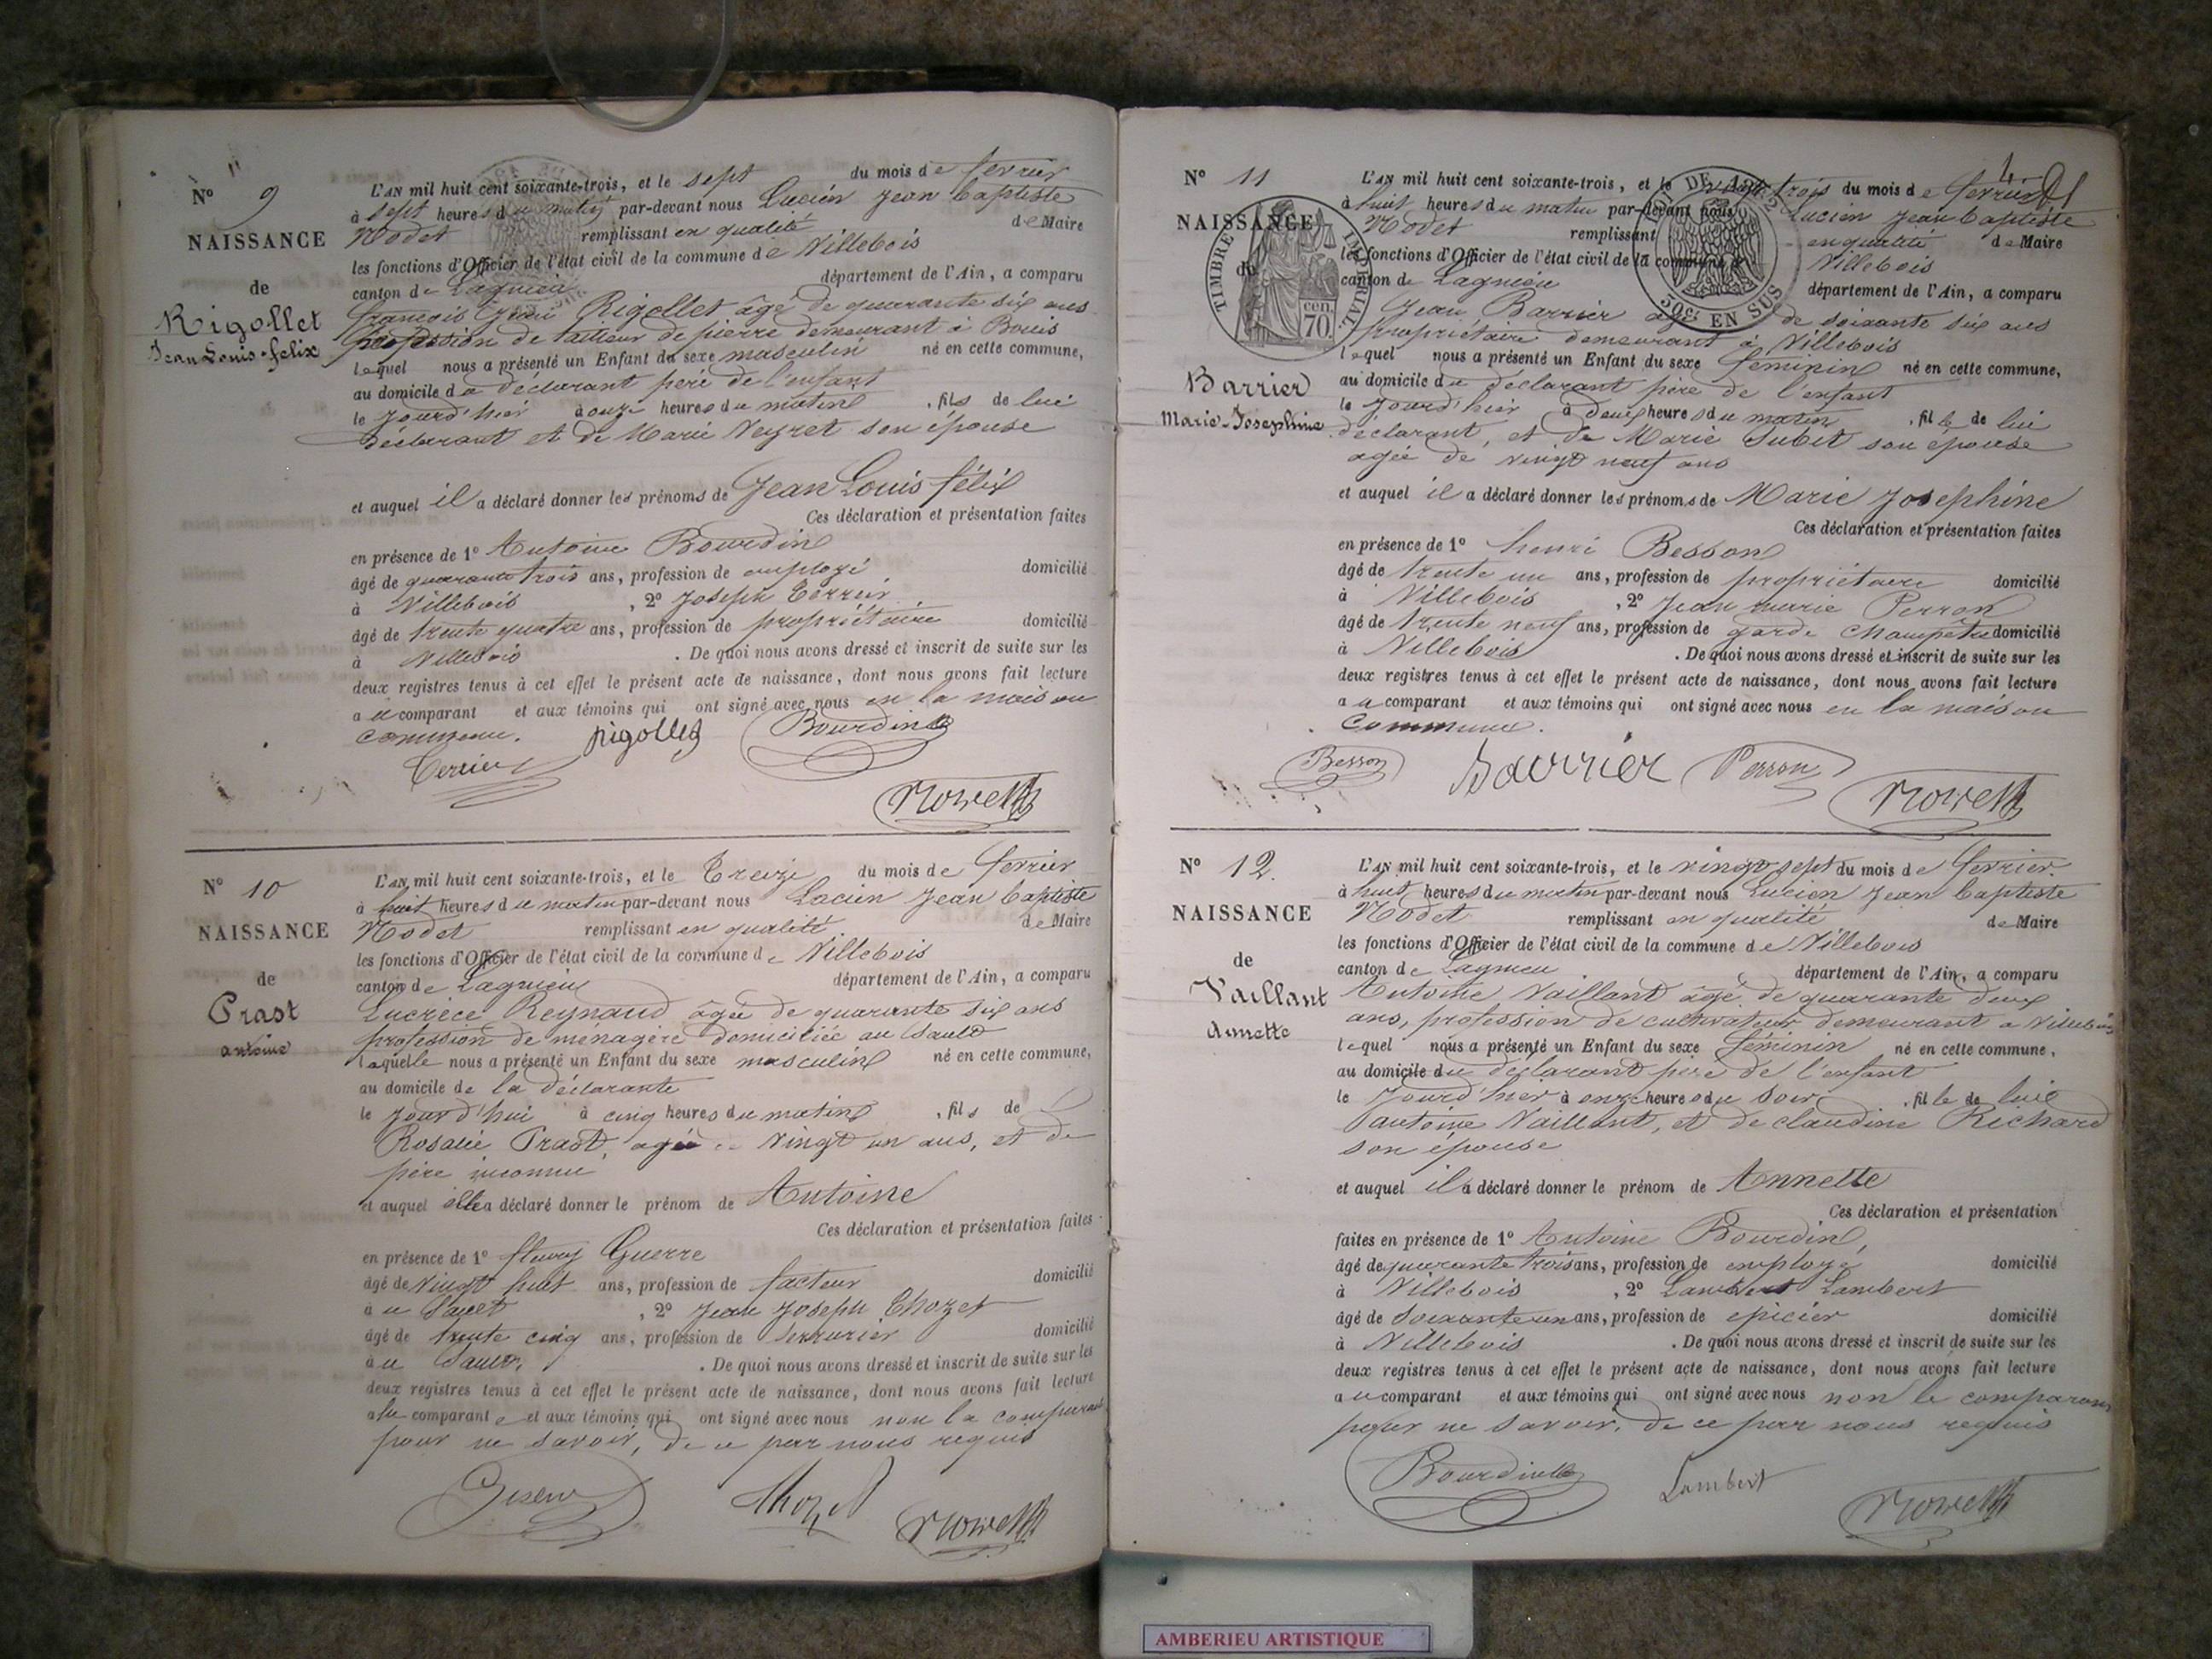 N° 9
NAISSANCE
de
Rigollet
Jean Louis-felix
L'AN mil huit cent soixante-trois, et le sept du mois de fevrier
à sept heures du matin par-devant nous Lucien Jean baptiste
Nodet remplissant en qualité de Maire
les fonctions d'Officier de l'état civil de la commune de Villebois
canton de Lagnieu département de l'Ain, a comparu
francois Rigollet âgé de quarante six ans
profession de tailleur de pierre demeurant à Bouis
lequel nous a présenté un Enfant du sexe masculin né en cette commune,
au domicile du déclarant père de l'enfant
le jourd'hier à onze heures du matin, fils de lui
déclarant et de Marie Veyret son épouse
et auquel il a déclaré donner les prénoms de Jean Louis félix
Ces déclaration et présentation faites
en présence de 1° Antoine Bourdin
âgé de quarante trois ans, profession de employé domicilié
à Villebois, 2° Joseph Terrier
âgé de trente quatre ans, profession de propriétaire domicilié
à Villebois. De quoi nous avons dressé et inscrit de suite sur les
deux registres tenus à cet effet le présent acte de naissance, dont nous avons fait lecture
au comparant et aux témoins qui ont signé avec nous en la maison
commune. Rigollet Bourdin
Terrier
N° 10
NAISSANCE
de
Prast
antoine
L'AN mil huit cent soixante-trois, et le Treize du mois de fevrier
à huit heures du matin par-devant nous Lucien Jean baptiste
Nodet remplissant en qualité de Maire
les fonctions d'Officier de l'état civil de la commune de Villebois
canton de Lagnieu département de l'Ain, a comparu
Lucrèce Reynaud âgée de quarante six ans
profession de ménagère domiciliée au Sault
laquelle nous a présenté un Enfant du sexe masculin né en cette commune,
au domicile de la déclarante
le jourd'hui à cinq heures du matin, fils de
Rosalie Prast, agée de vingt un ans, et de
père inconnu
et auquel elle a déclaré donner le prénom de Antoine
Ces déclaration et présentation faites
en présence de 1° fleury Guerre
âgé de vingt huit ans, profession de facteur domicilié
au Sault, 2° Jean Joseph Chozet
âgé de trente cinq ans, profession de serrurier domicilié
au Sault. De quoi nous avons dressé et inscrit de suite sur les
deux registres tenus à cet effet le présent acte de naissance, dont nous avons fait lecture
a la comparante et aux témoins qui ont signé avec nous non la comparante
pour ne savoir, de ce par nous requis
Chozet
N° 11
NAISSANCE
de
Barrier
Marie-Josephine
TIMBRE IMPERIAL
70 cen.
50c EN SUS
L'AN mil huit cent soixante-trois, et le vingt trois du mois de fevrier
à huit heures du matin par-devant nous Lucien Jean baptiste
Nodet remplissant en qualité de Maire
les fonctions d'Officier de l'état civil de la commune de Villebois
canton de Lagnieu département de l'Ain, a comparu
Jean Barrier agé de soixante six ans
propriétaire demeurant à Villebois
lequel nous a présenté un Enfant du sexe féminin né en cette commune,
au domicile du déclarant père de l'enfant
le jourd'hier à deux heures du matin, fille de lui
déclarant, et de Marie Subit son épouse
agée de vingt neuf ans
et auquel il a déclaré donner les prénoms de Marie Josephine
Ces déclaration et présentation faites
en présence de 1° henri Besson
âgé de trente un ans, profession de propriétaire domicilié
à Villebois, 2° Jean marie Perron
âgé de trente neuf ans, profession de garde champêtre domicilié
à Villebois. De quoi nous avons dressé et inscrit de suite sur les
deux registres tenus à cet effet le présent acte de naissance, dont nous avons fait lecture
au comparant et aux témoins qui ont signé avec nous en la maison
commune.
Besson Barrier Perron
N° 12.
NAISSANCE
de
Vaillant
Annette
L'AN mil huit cent soixante-trois, et le vingt sept du mois de fevrier.
à huit heures du matin par-devant nous Lucien Jean baptiste
Nodet remplissant en qualité de Maire
les fonctions d'Officier de l'état civil de la commune de Villebois
canton de Lagnieu département de l'Ain, a comparu
Antoine Vaillant âgé de quarante deux
ans, profession de cultivateur demeurant a Villebois
lequel nous a présenté un Enfant du sexe féminin né en cette commune,
au domicile du déclarant père de l'enfant
le jourd'hier à onze heures du soir, fille de lui
antoine Vaillant, et de claudine Richard
son épouse
et auquel il a déclaré donner le prénom de Annette
Ces déclaration et présentation
faites en présence de 1° Antoine Bourdin,
âgé de quarante trois ans, profession de employé domicilié
à Villebois, 2° Lambert Lambert
âgé de soixante un ans, profession de épicier domicilié
à Villebois. De quoi nous avons dressé et inscrit de suite sur les
deux registres tenus à cet effet le présent acte de naissance, dont nous avons fait lecture
au comparant et aux témoins qui ont signé avec nous non le comparant
pour ne savoir, de ce par nous requis
Bourdin Lambert
AMBERIEU ARTISTIQUE